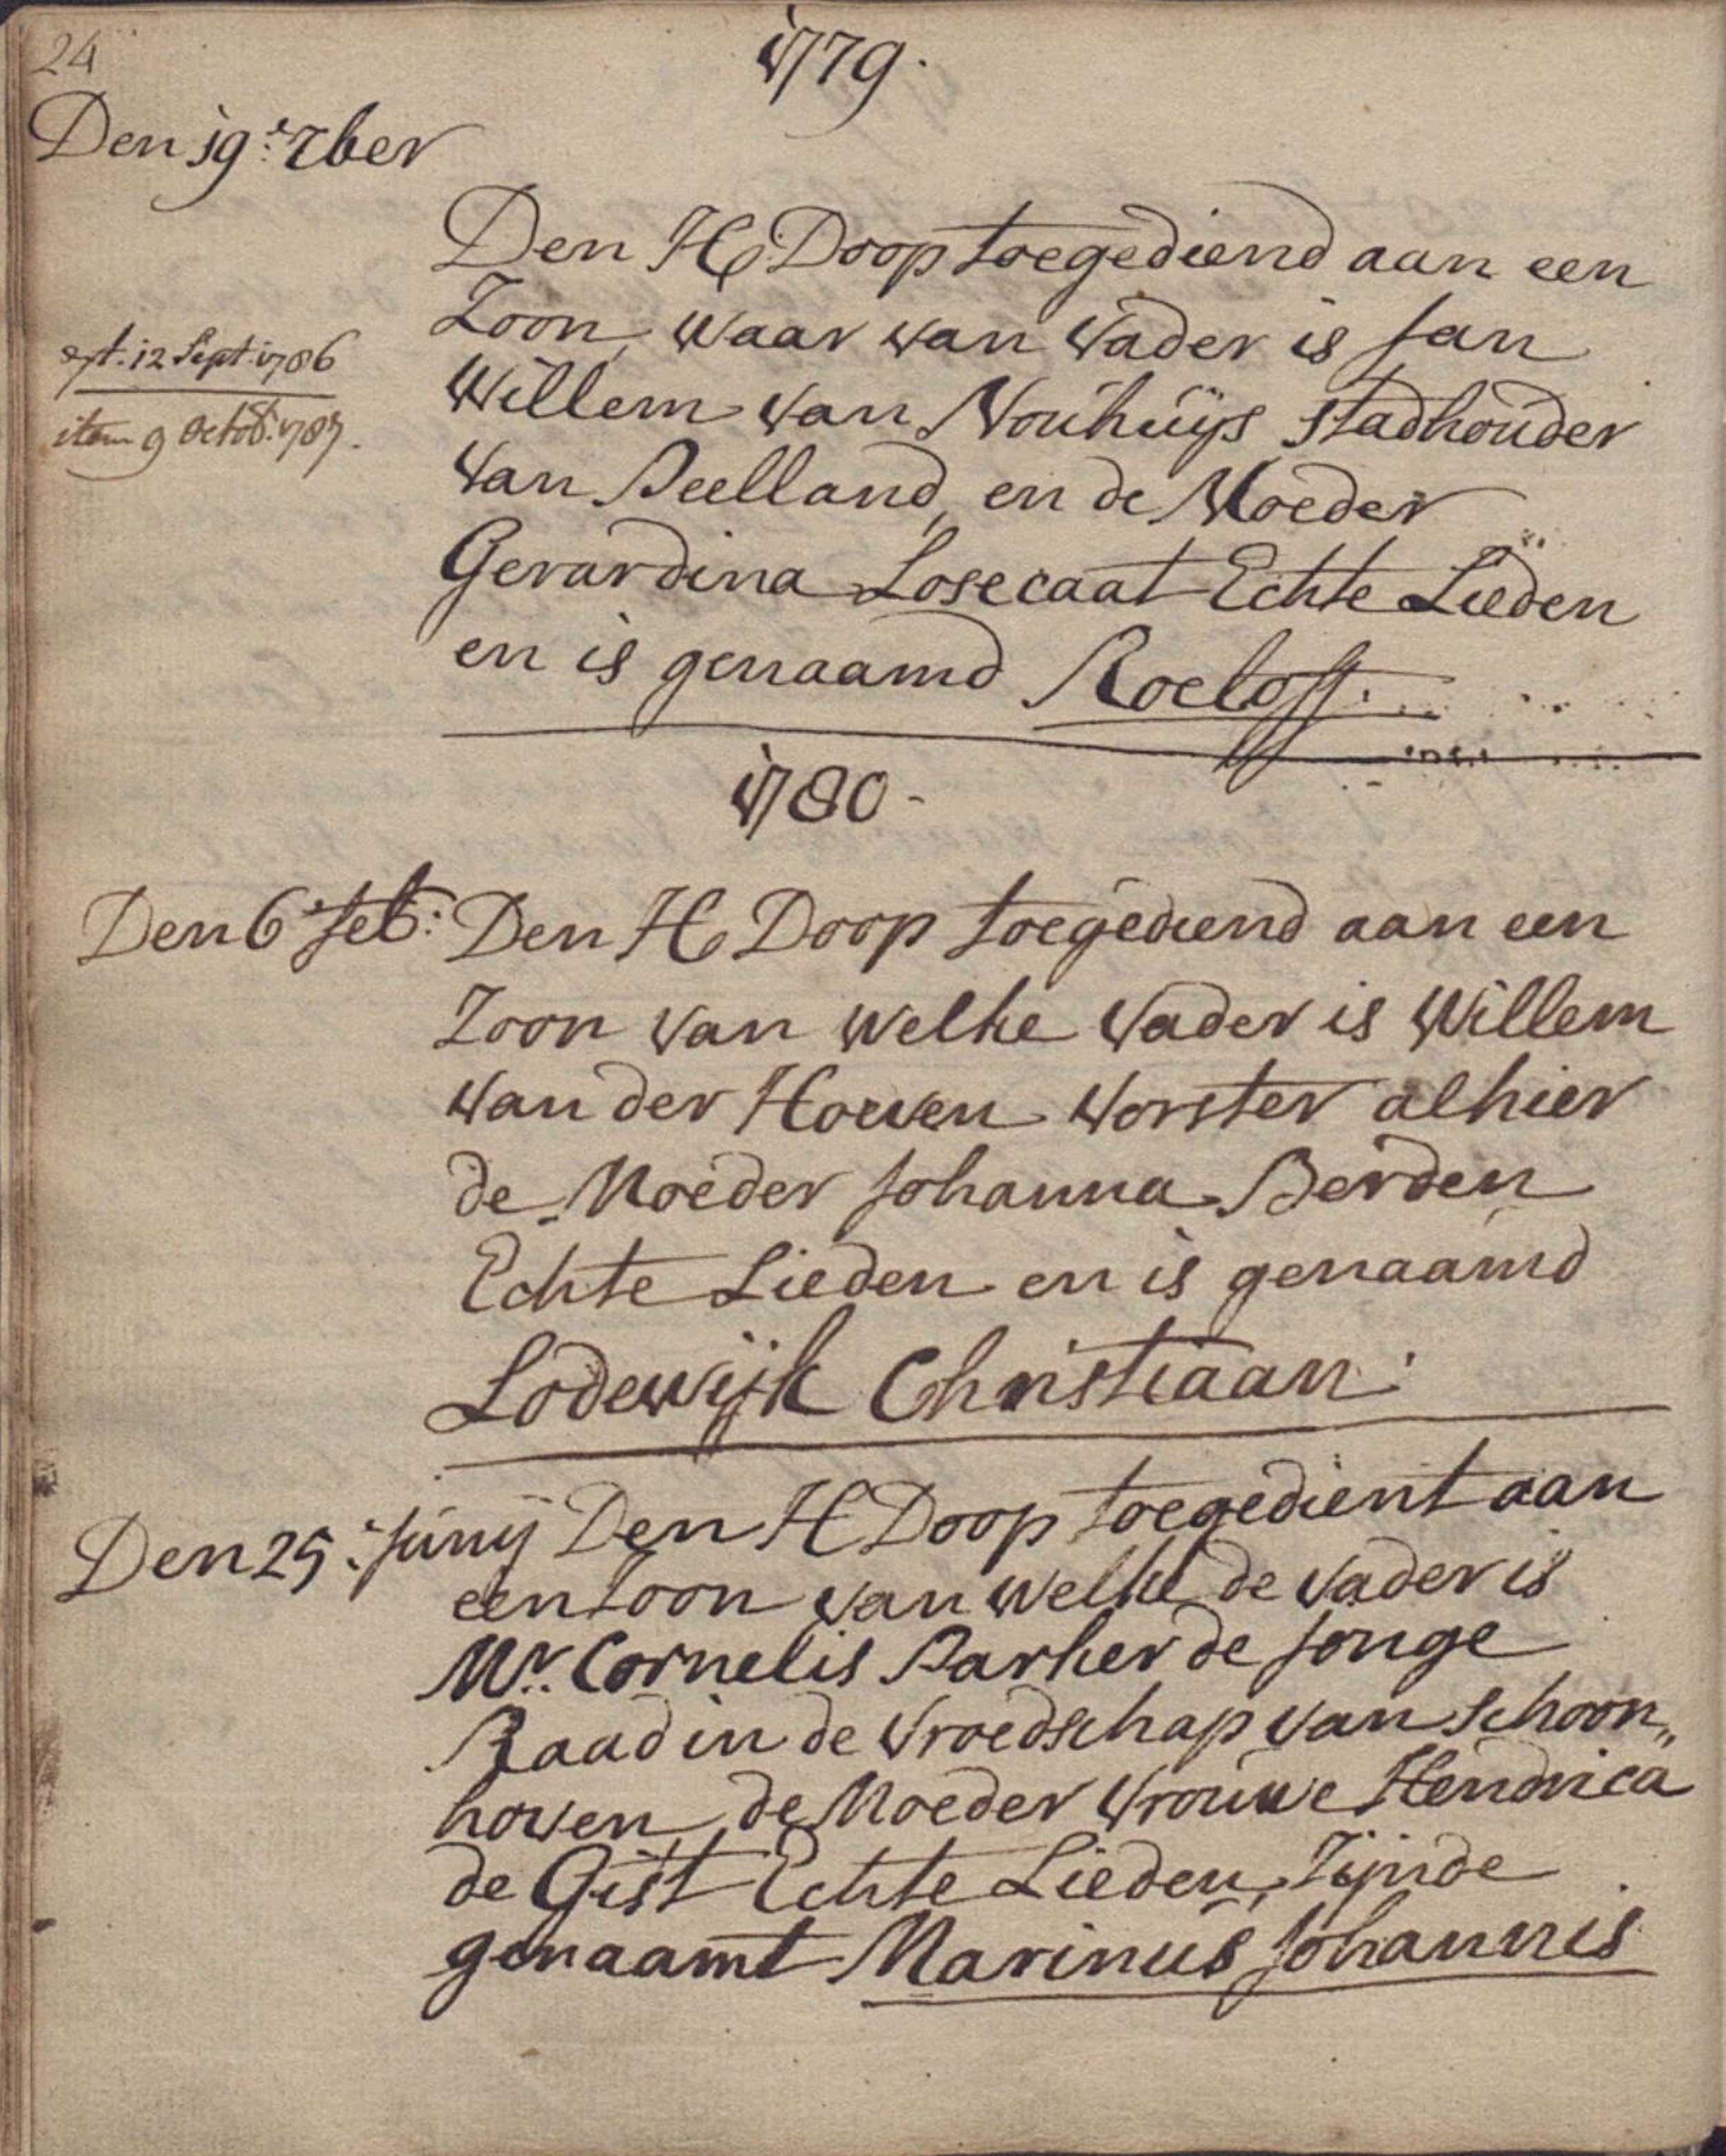 24
1779.
Den 19.e 7ber
Den H Doop toegediend aan een
Zoon, waar van vader is Jan
ext. 12 Sept. 1786
Willem van Nouhuijs stadhouder
item 9 Octob. 1787.
van Peelland, en de Moeder
Gerardina Losecaat Echte Lieden
en is genaamd Roeloff.
1780.
Den 6e feb: Den H Doop toegediend aan een
Zoon van welke vader is Willem
van der Hoeven vorster alhier
de Moeder Johanna Berden
Echte Lieden en is genaamd
Lodewijk Christiaan.
Den 25.e Junij Den H Doop toegedient aan
een Zoon van welke de vader is
Mr. Cornelis Parker de Jonge
Raad in de vroedschap van schoon„
hoven, de Moeder vrouwe Hendrica
de Gist Echte Lieden, zijnde
genaamt Marinus Johannis